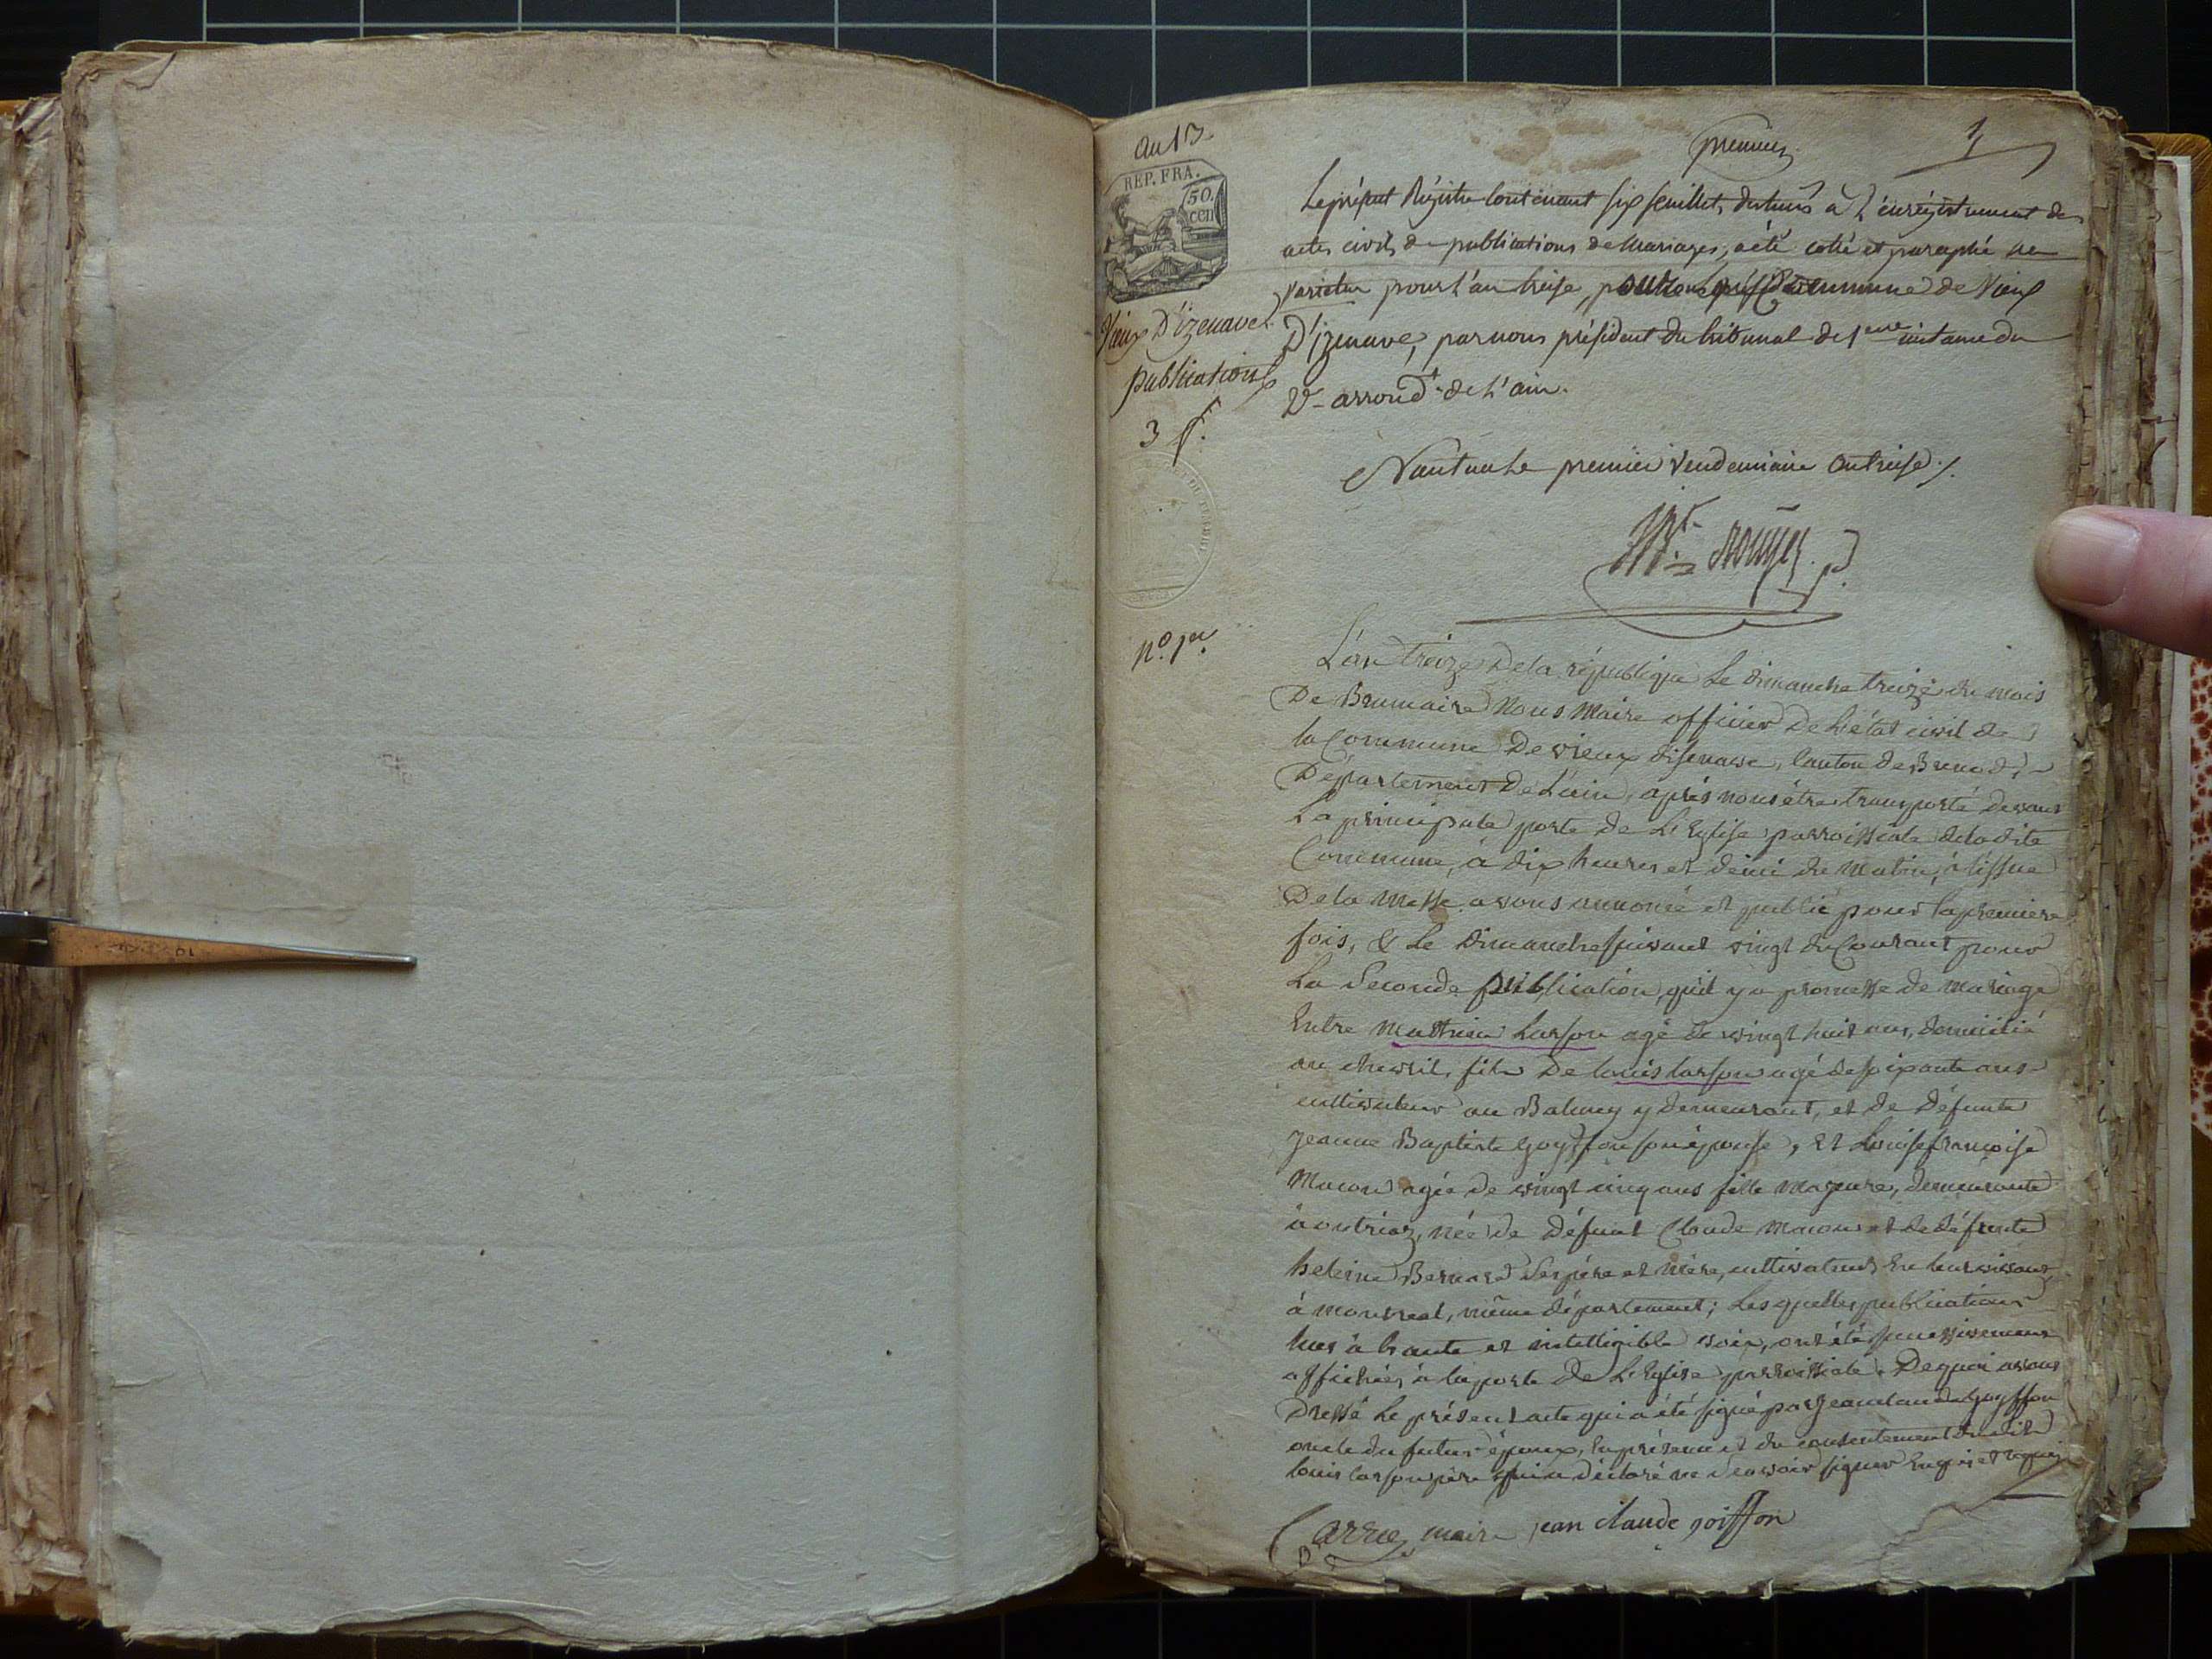 an 13.
REP. FRA.
50.
cen
Vieux D'izenave
publications
3 f.
premier
1
Le présent Régistre contenant six feuillets destinés à l'enrégistrement des
actes civils de publications de Mariages, a été coté et paraphé ne
varietur pour l'an treise, pour la commune de Vieux
D'izenave, par nous président du tribunal de 1ere instance du
arrond.t de l'ain.
Nantua le premier Vendemiaire an treise ./.
n.o 1er
L'an treize De la républiqe Le dimanche treize du mois
De Brumaire Nous Maire officier De L'état civil de
la Commune De vieux disenave, Canton de Brenod,
Département De L'ain, après nous être transporté devant
La principale porte de L'Eglise parroissiale de la dite
Commune, à dix heures et demi du Matin, à lissue
De la Messe avons annoncé et publié pour la premiere
fois, & Le dimanche suivant vingt du Courant pour
La Seconde publication, quil y a promesse de mariage
Entre Mathieu Carson agé de vingt huit ans, domicilié
au chevril, fils De Louis Carson agé de soixante ans
cultivateur au Balmey y demeurant, et de défunte
jeanne Baptiste Goyffon son épouse, Et Louise françoise
Macon agée de vingt cinq ans fille Majeure, demeurante
à outriaz, née de défunt Claude Macon et de défunte
heleine Bernard Ses père et mère, cultivateurs En leur vivant
à montreal, même département; Lesquelles publications
lues à haute et intelligible voix, ont été successivement
affichées à la porte De L'Eglise parroissiale. De quoi avons
Dressé Le présent acte qui a été signé par Jean claude Goyffon
oncle du futur époux, En présence et du consentement du dit
Louis Carson père qui a déclaré ne Scavoir signer Enquis et requis
Carrier maire jean claude goiffon